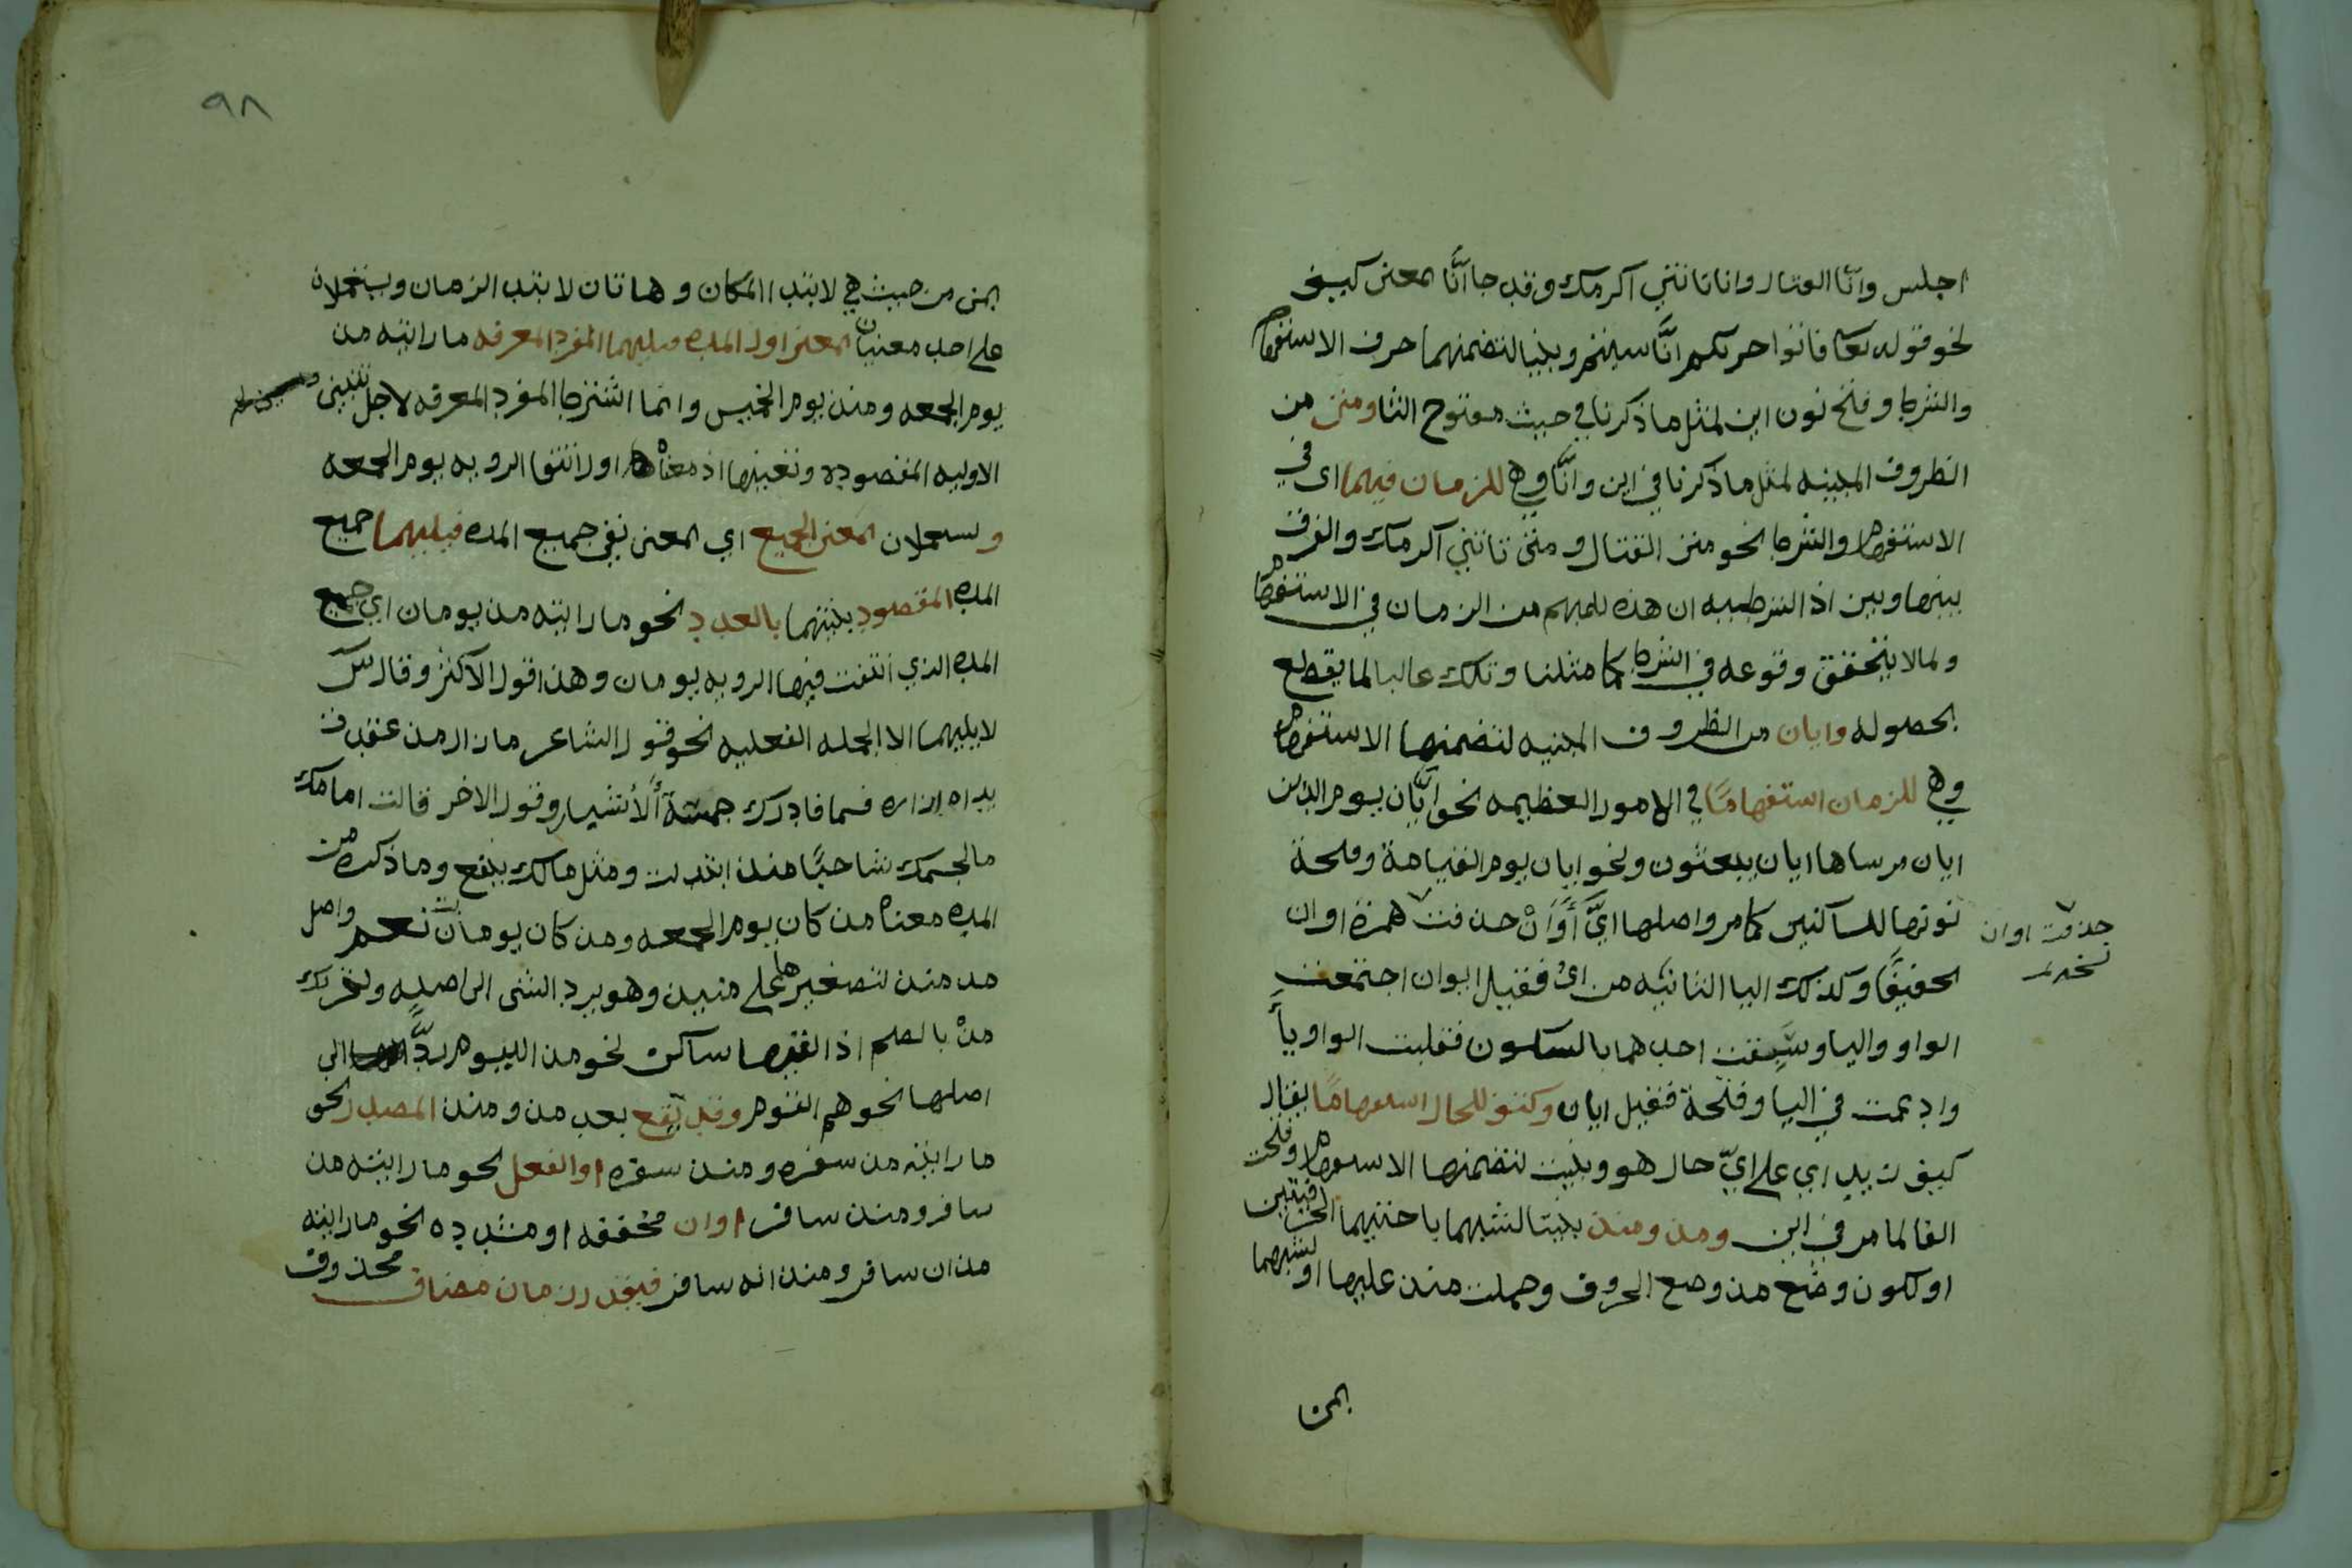 اجلس وانّا القتال وانا تاتني اكرمك وقد جا انّا بمعنى كيف
نحو قوله تعا فاتوا حرثكم انّا سيتم وبنيا لتضمنهما حرف الاستفهام
والشرط وفتح نون اين لمثل ما ذكرنا في حيث مفتوح الثا ومتى من
الظروف المبنيه لمثل ما ذكرنا في اين وانّا وهي للزمان فيهما اي في
الاستفهام والشرط نحو متى القتال ومتى تاتني اكرمك والفرق
بينها وبين اذا الشرطيه ان هذه للمبهم من الزمان في الاستفهام
ولما لا يتحقق وقوعه في الشرط كما مثلنا وتلك غالبا لما يقطع
بحصوله وايان من الظروف المبنيه لتضمنها الاستفهام
وهي للزمان استفهامًا في الامور العظيمه نحو ايّان يوم الدين
ايان مرساها ايان يبعثون ونحو ايان يوم القيامة وفتحة
نونها للساكنين كما مر واصلها ايَّ أَوَانْ حذفت همزة اوان
حذفت اوان
تخفيفًا وكذلك اليا الثانيه من اي فقيل ايوان اجتمعت
الواو واليا وسبقت احدهما بالسكون فقلبت الواو ياً
وادغمت في اليا وفتحة فقيل ايان وكيف للحال استفهامًا يقال
كيف زيد اي على ايّ حال هو وبنيت لتضمنها الاستفهام وفتحت
الفا لما مر في اين ومذ ومنذ بنيتا لشبههما باختيهما الحرفيتين
او لكون وضع مذ وضع الحروف وحملت منذ عليها او لشبههما
بمن
٩٨
بمن من حيث هي لابتدا المكان وهاتان لابتدا الزمان ويستعملان
على احد معنيان بمعنى اول المده فيليهما المفرد المعرفه ما رايته مذ
يوم الجمعه ومنذ يوم الخميس وانما اشترط المفرد المعرفه لاجل تبيين
الاوليه المقصوده وتعيينها اذ معناه اول انتفا الرويه يوم الجمعه
ويستعملان بمعنى الجميع اي بمعنى نفي جميع المده فيليهما جميع
المده المقصود بنيتهما بالعدد نحو ما رايته مذ يومان اي جميع
المده الذي انتفت فيها الرويه يومان وهذا قول الاكثر وقال س
لا يليهما الا الجمله الفعليه نحو قول الشاعر ما زال مذ عقدت
يداه ازاره فسما فادرك خمسة ألأشبار وقول الاخر قالت امامك
ما لجسمك شاحبًا منذ ابتذلت ومثل مالك ينفع وما ذكره من
المده معناه مذ كان يوم الجمعه ومذ كان يومان نعم واصل
مذ منذ لتصغيرها على منيذ وهو يرد الشى الى اصله وتحريك
مذْ بالضم اذا لقيها ساكن نحو مذ اليوم ردًّا الى
اصلها نحو هم القوم وقد يقع بعد مذ ومنذ المصدر نحو
ما رايته مذ سفره ومنذ سفره او الفعل نحو ما رايته مذ
سافر ومنذ سافر او ان مخففه او مشدده نحو ما رايته
مذ ان سافر ومنذ انه سافر فيقدر زمان مضاف محذوف